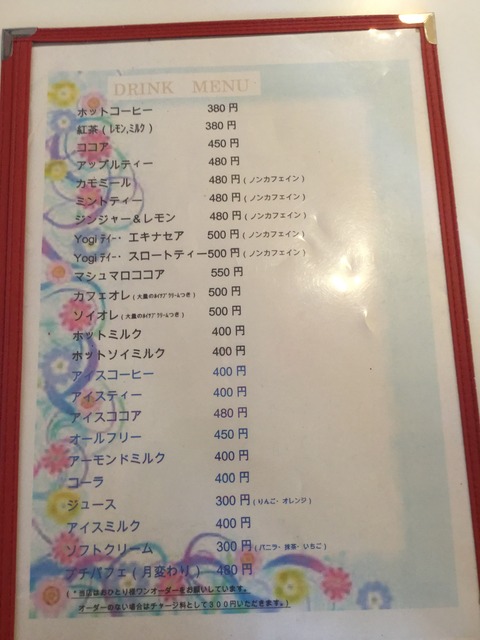 DRINK MENU
ホットコーヒー 380円
紅茶(レモン,ミルク) 380円
ココア 450円
アップルティー 480円
カモミール 480円(ノンカフェイン)
ミントティー 480円(ノンカフェイン)
ジンジャー&レモン 480円(ノンカフェイン)
Yogi ティー・エキナセア 500円(ノンカフェイン)
Yogi ティー・スロートティー 500円(ノンカフェイン)
マシュマロココア 550円
カフェオレ(大量のホイップクリームつき) 500円
ソイオレ(大量のホイップクリームつき) 500円
ホットミルク 400円
ホットソイミルク 400円
アイスコーヒー 400円
アイスティー 400円
アイスココア 480円
オールフリー 450円
アーモンドミルク 400円
コーラ 400円
ジュース 300円(りんご・オレンジ)
アイスミルク 400円
ソフトクリーム 300円(バニラ・抹茶・いちご)
プチパフェ(月変わり) 480円
(*当店はおひとり様ワンオーダーをお願いしています。
オーダーのない場合はチャージ料として300円いただきます。)